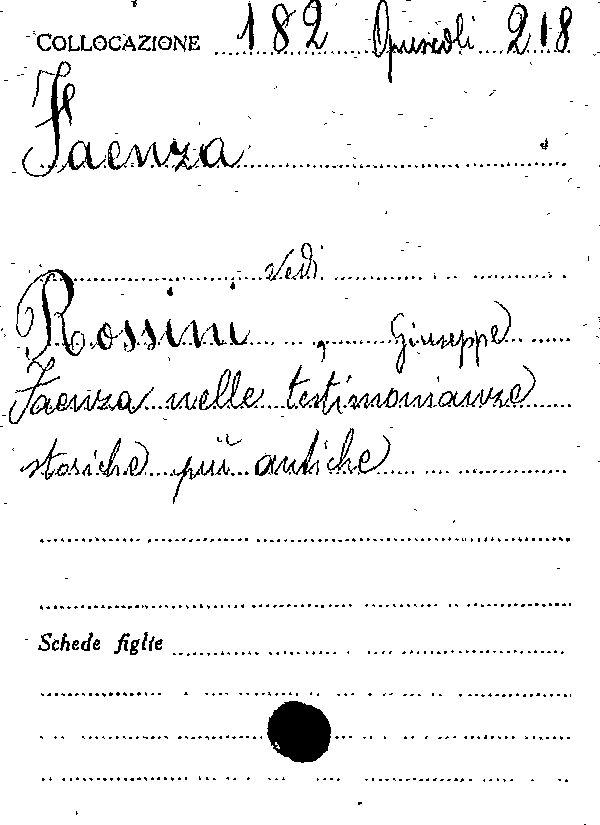 COLLOCAZIONE 182 Opuscoli 218
Faenza
Vedi
Rossini, Giuseppe
Faenza nelle testimonianze
storiche più antiche
Schede figlie